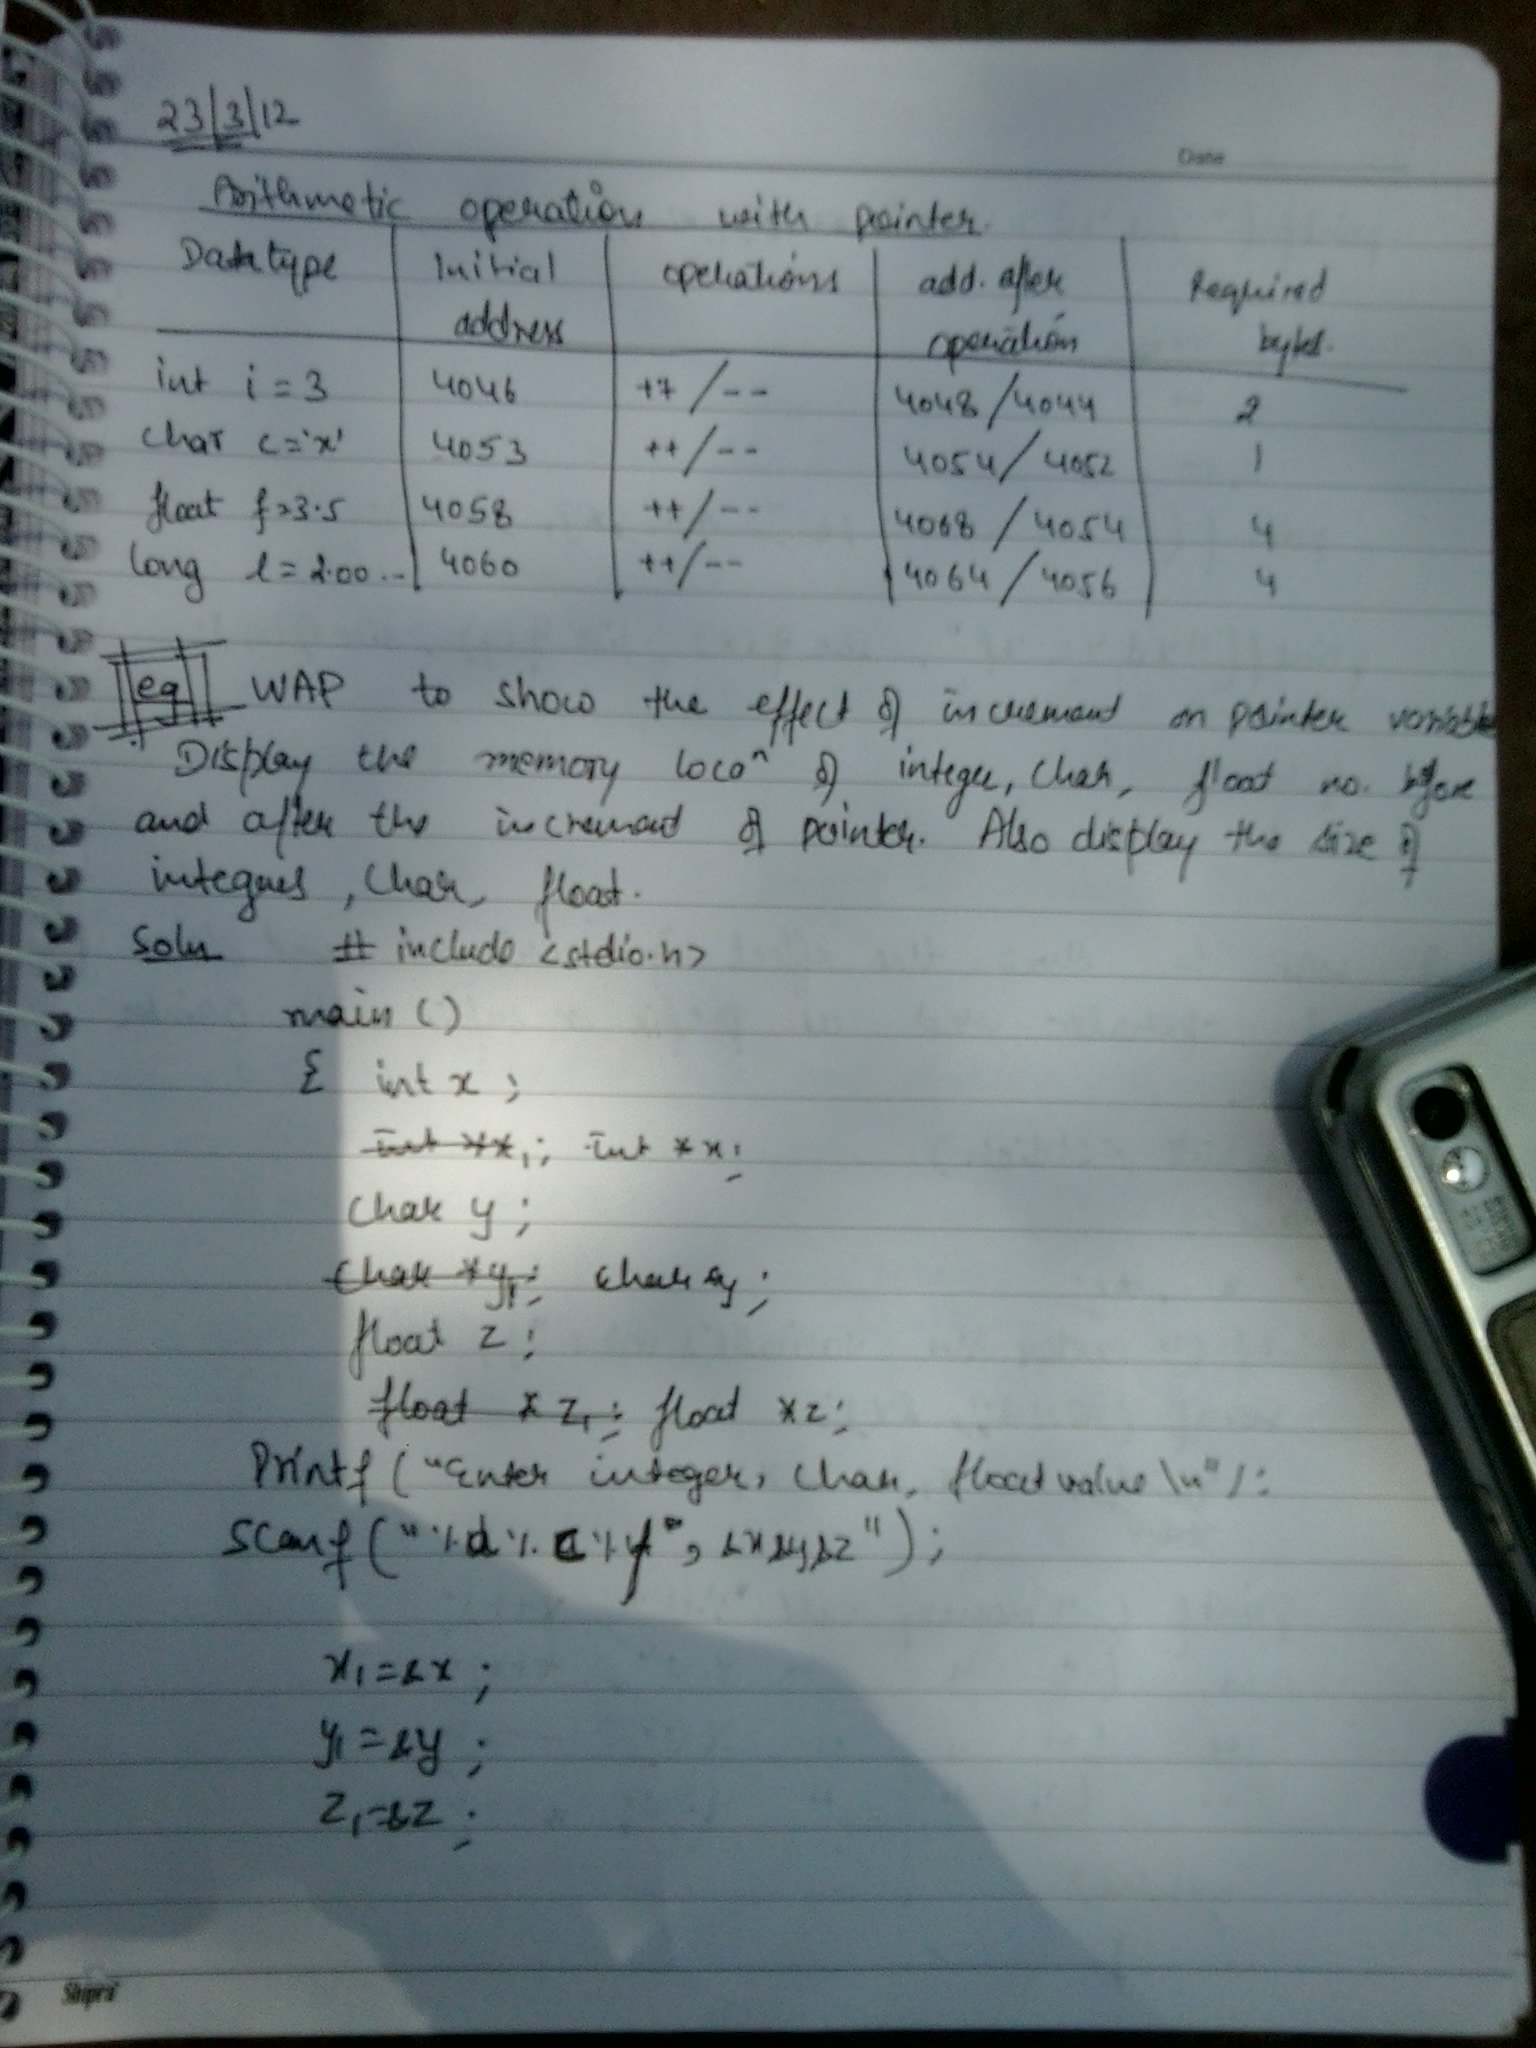 23/3/12
Date
Arithmetic operation with pointer.
Datatype Initial address operations add. after operation Required bytes.
int i = 3 4046 ++/-- 4048/4044 2
char c='x' 4053 ++/-- 4054/4052 1
float f=3.5 4058 ++/-- 4068/4054 4
long l=2.00... 4060 ++/-- 4064/4056 4
eg WAP to show the effect of increment on pointer variable
Display the memory locoⁿ of integer, char, float no. before
and after the increment of pointer. Also display the size of
integers, char, float.
Soln # include <stdio.h>
main ()
{ int x ;
int *x₁; int *x;
char y ;
char *y₁; char *y ;
float z ;
float *z₁; float *z;
Printf ("Enter integer, char, float value \n");
Scanf ("%d%c%f", &x&y&z");
x₁=&x ;
y₁=&y ;
z₁=&z ;
Shipra